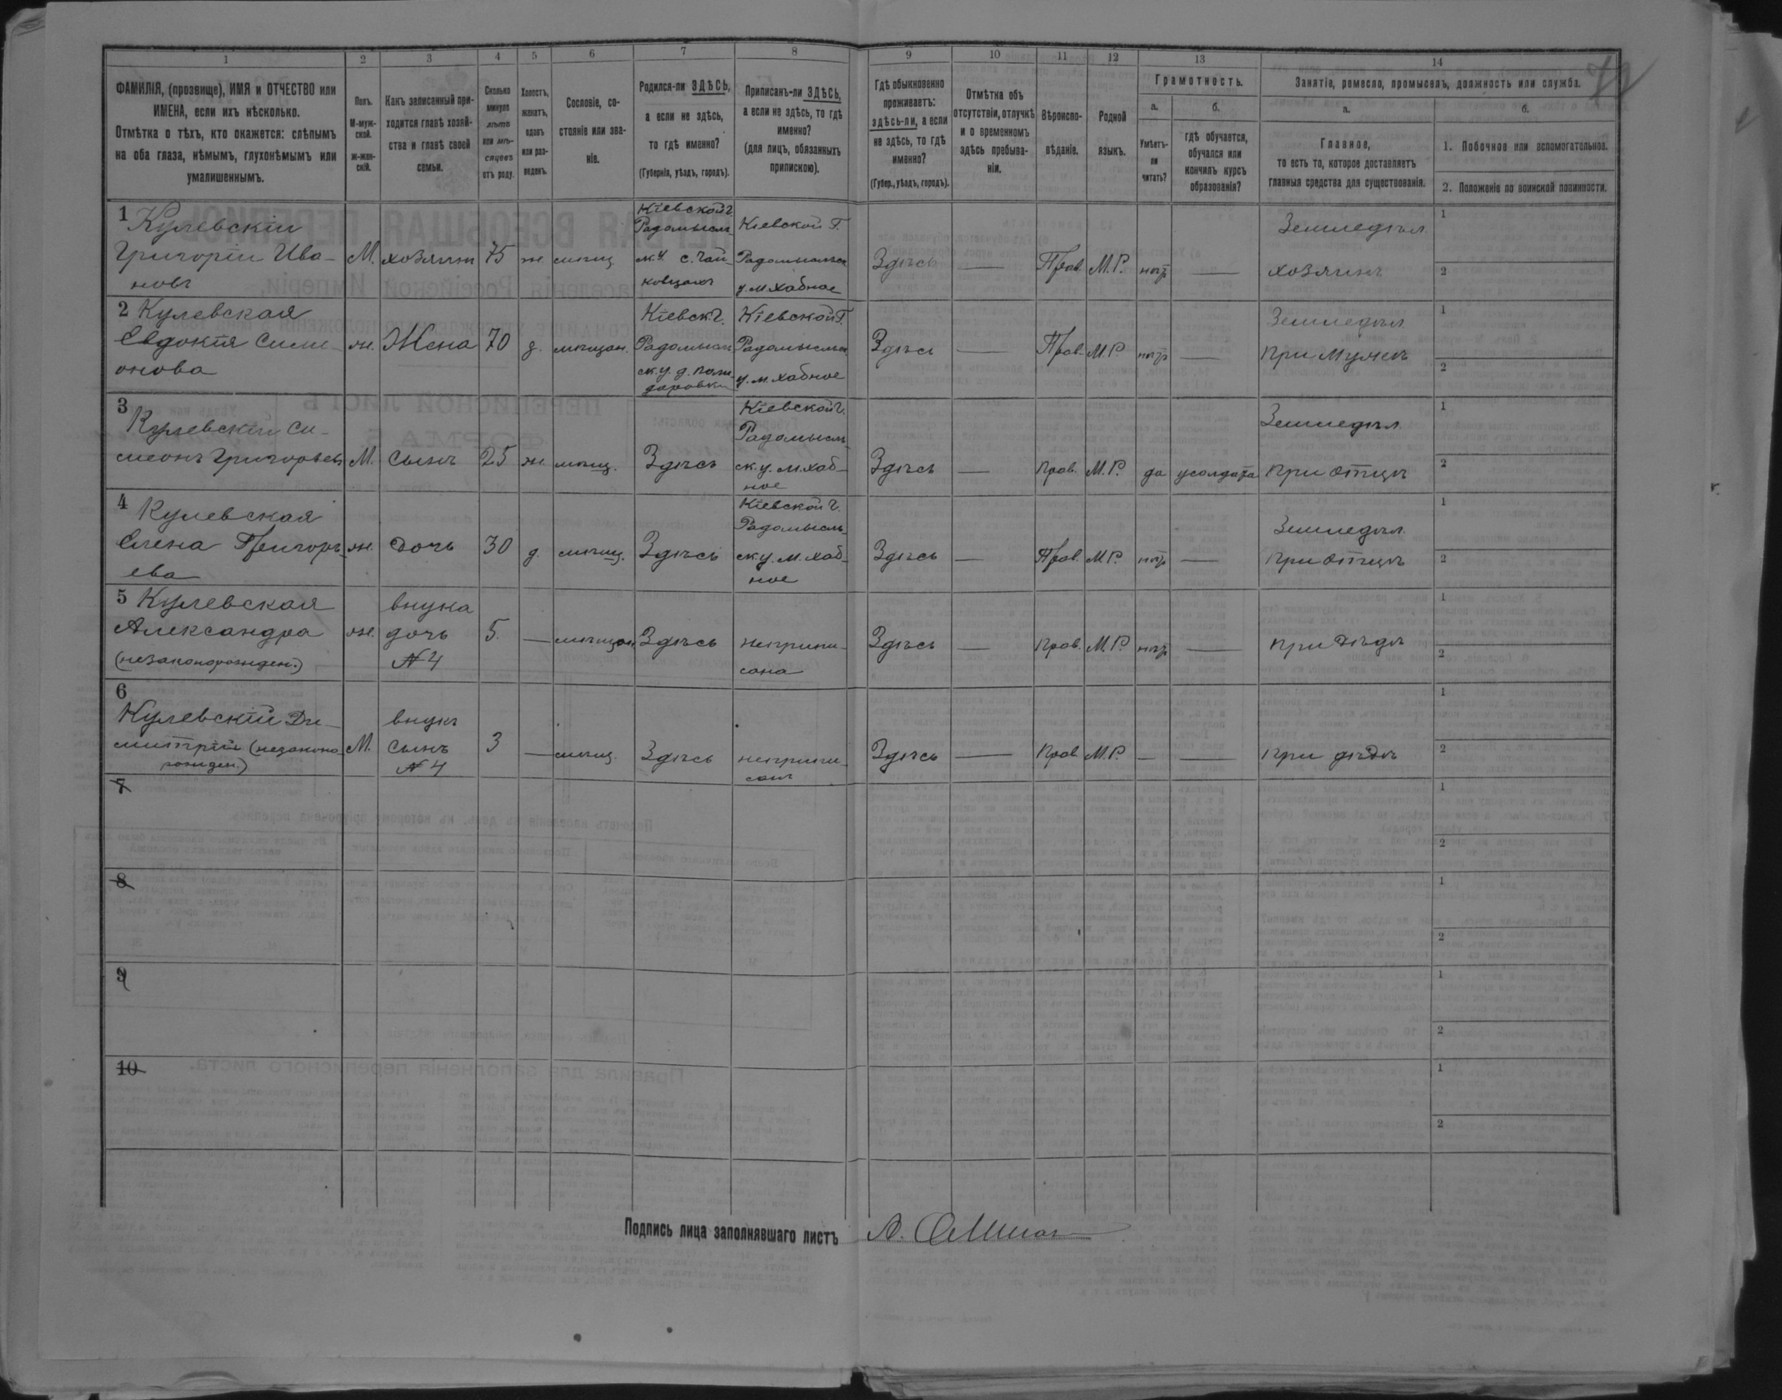 1 2 3 4 5 6 7 8 9 10 11 12 13 14
ФАМИЛІЯ, (прозвище), ИМЯ и ОТЧЕСТВО или
ИМЕНА, если ихъ нѣсколько.
Отмѣтка о тѣхъ, кто окажется: слѣпымъ
на оба глаза, нѣмымъ, глухонѣмымъ или
умалишеннымъ.
Полъ.
М-муж-
ской.
ж-жен-
скій.
Какъ записанный при-
ходится главѣ хозяй-
ства и главѣ своей
семьи.
Сколько
минуло
лѣтъ
или мѣ-
сяцевъ
отъ роду.
Холостъ,
женатъ,
вдовъ
или раз-
веденъ.
Сословіе, со-
стояніе или зва-
ніе.
Родился-ли ЗДѢСЬ,
а если не здѣсь,
то гдѣ именно?
(Губернія, уѣздъ, городъ).
Приписанъ-ли ЗДѢСЬ,
а если не здѣсь, то гдѣ
именно?
(для лицъ, обязанныхъ
припискою).
Гдѣ обыкновенно
проживаетъ:
здѣсь-ли, а если
не здѣсь, то гдѣ
именно?
(Губер., уѣздъ, городъ).
Отмѣтка объ
отсутствіи, отлучкѣ
и о временномъ
здѣсь пребыва-
ніи.
Вѣроиспо-
вѣданіе.
Родной
языкъ.
Грамотность.
а.
Умѣетъ-
ли
читать?
б.
гдѣ обучается,
обучался или
кончилъ курсъ
образованія?
Занятіе, ремесло, промыселъ, должность или служба.
а.
Главное,
то есть то, которое доставляетъ
главныя средства для существованія.
б.
1. Побочное или вспомогательное.
2. Положеніе по воинской повинности.
1 Кулевскій
Григорій Ива-
новъ
М. хозяинъ 75 ж мѣщ.
Кіевской г.
Радомысль-
ск. у с. Чай-
ковщохъ
Кіевской Г.
Радомысльск
у. м. Хабное
Здѣсь — Прав М.Р. нѣтъ —
Земледѣл
хозяинъ
1
2
2 Кулевская
Евдокія Симе-
онова
ж. Жена 70 з. мѣщан.
Кіевск г.
Радомысль
ск. у. д.
Кіевской Г.
Радомысльск
у. м. Хабное
Здѣсь — Прав. М.Р. нѣтъ —
Земледѣл.
при мужѣ
1
2
3
Кулевскій Си-
меонъ Григорьевъ
М. сынъ 25 ж мѣщ. Здѣсь
Кіевской г.
Радомысль
ск у. м. Хаб-
ное
Здѣсь — прав. М.Р. да у солдата
Земледѣл.
при отцѣ
1
2
4
Кулевская
Елена Григорь-
ева
ж. дочь 30 д. мѣщ. Здѣсь
Кіевской г.
Радомысль
ск у. м. Хаб-
ное
Здѣсь — Прав. М.Р. нѣтъ —
Земледѣл.
при отцѣ
1
2
5 Кулевская
Александра
(незаконорожден.)
ж.
внука
дочь
№ 4
5 — мѣщан. Здѣсь
неприпи-
сана
Здѣсь — прав. М.Р. нѣтъ —
при дѣдѣ
1
2
6
Кулевскій Ди-
митрій (незаконо-
рожден.)
М.
внукъ
сынъ
№ 4
3 — мѣщ. Здѣсь
неприпи-
санъ
Здѣсь — Прав М.Р. — —
при дѣдѣ
1
2
7
1
2
8
1
2
9
1
2
10
1
2
Подпись лица заполнявшаго листъ